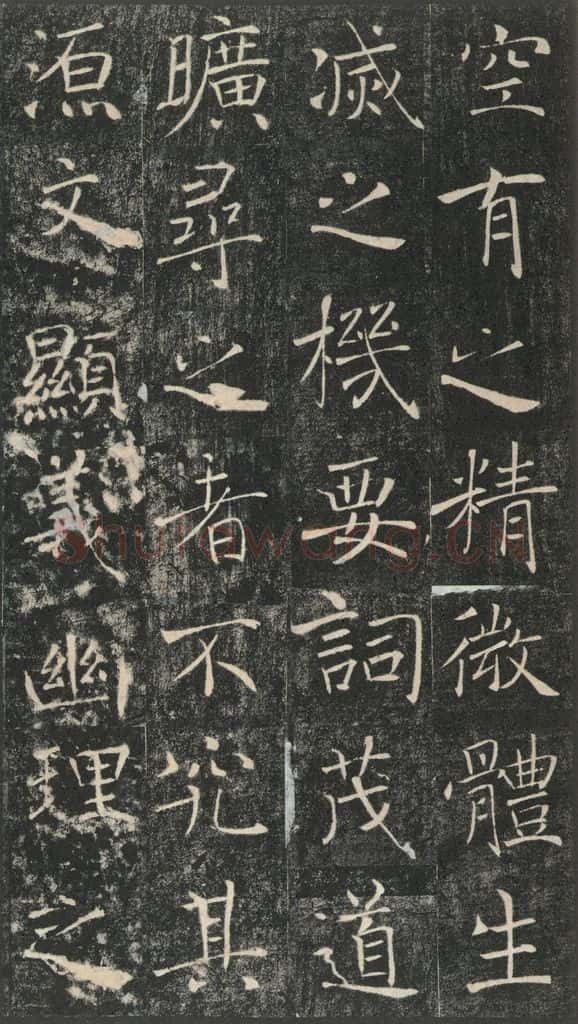 空有之精微體生
滅之機要詞茂道
曠尋之者不究其
源文顯義幽理之
shufawang.cn